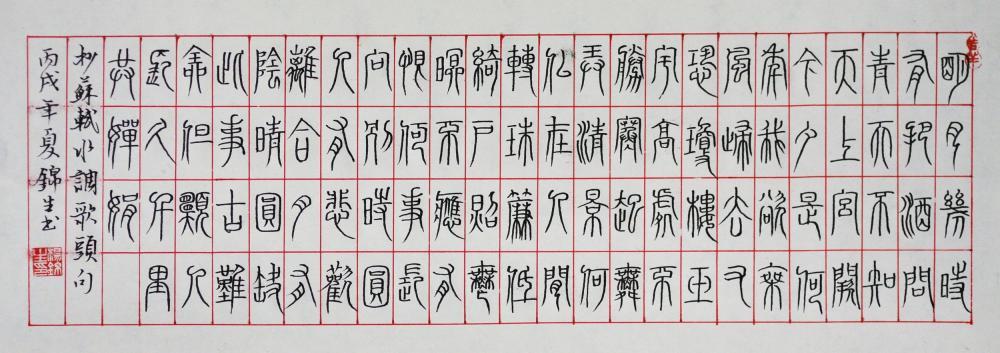 明月幾時
有把酒問
青天不知
天上宮闕
今夕是何
年我欲乘
風歸去又
恐瓊樓玉
宇高處不
勝寒起舞
弄清景何
似在人間
轉珠簾低
綺戶照無
眠不應有
恨何事長
向別時圓
人有悲歡
離合月有
陰晴圓缺
此事古難
全但願人
長久千里
共嬋娟
抄蘇軾水調歌頭句
丙戌年夏錦生书